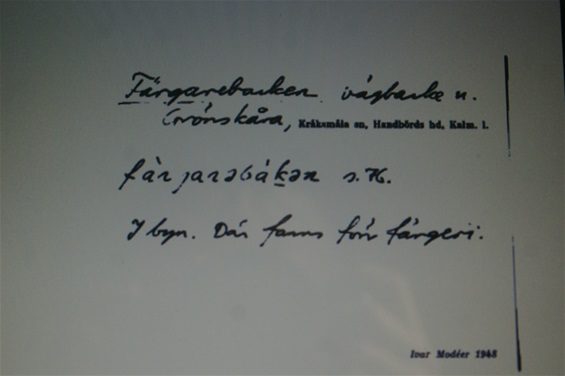 Färgarebacken vägbacke n.
Grönskåra, Kråksmåla sn, Handbörds hd, Kalm. l.
fàrjarəbákən s. H.
I byn. Där fanns förr färgeri.
Ivar Modéer 1948